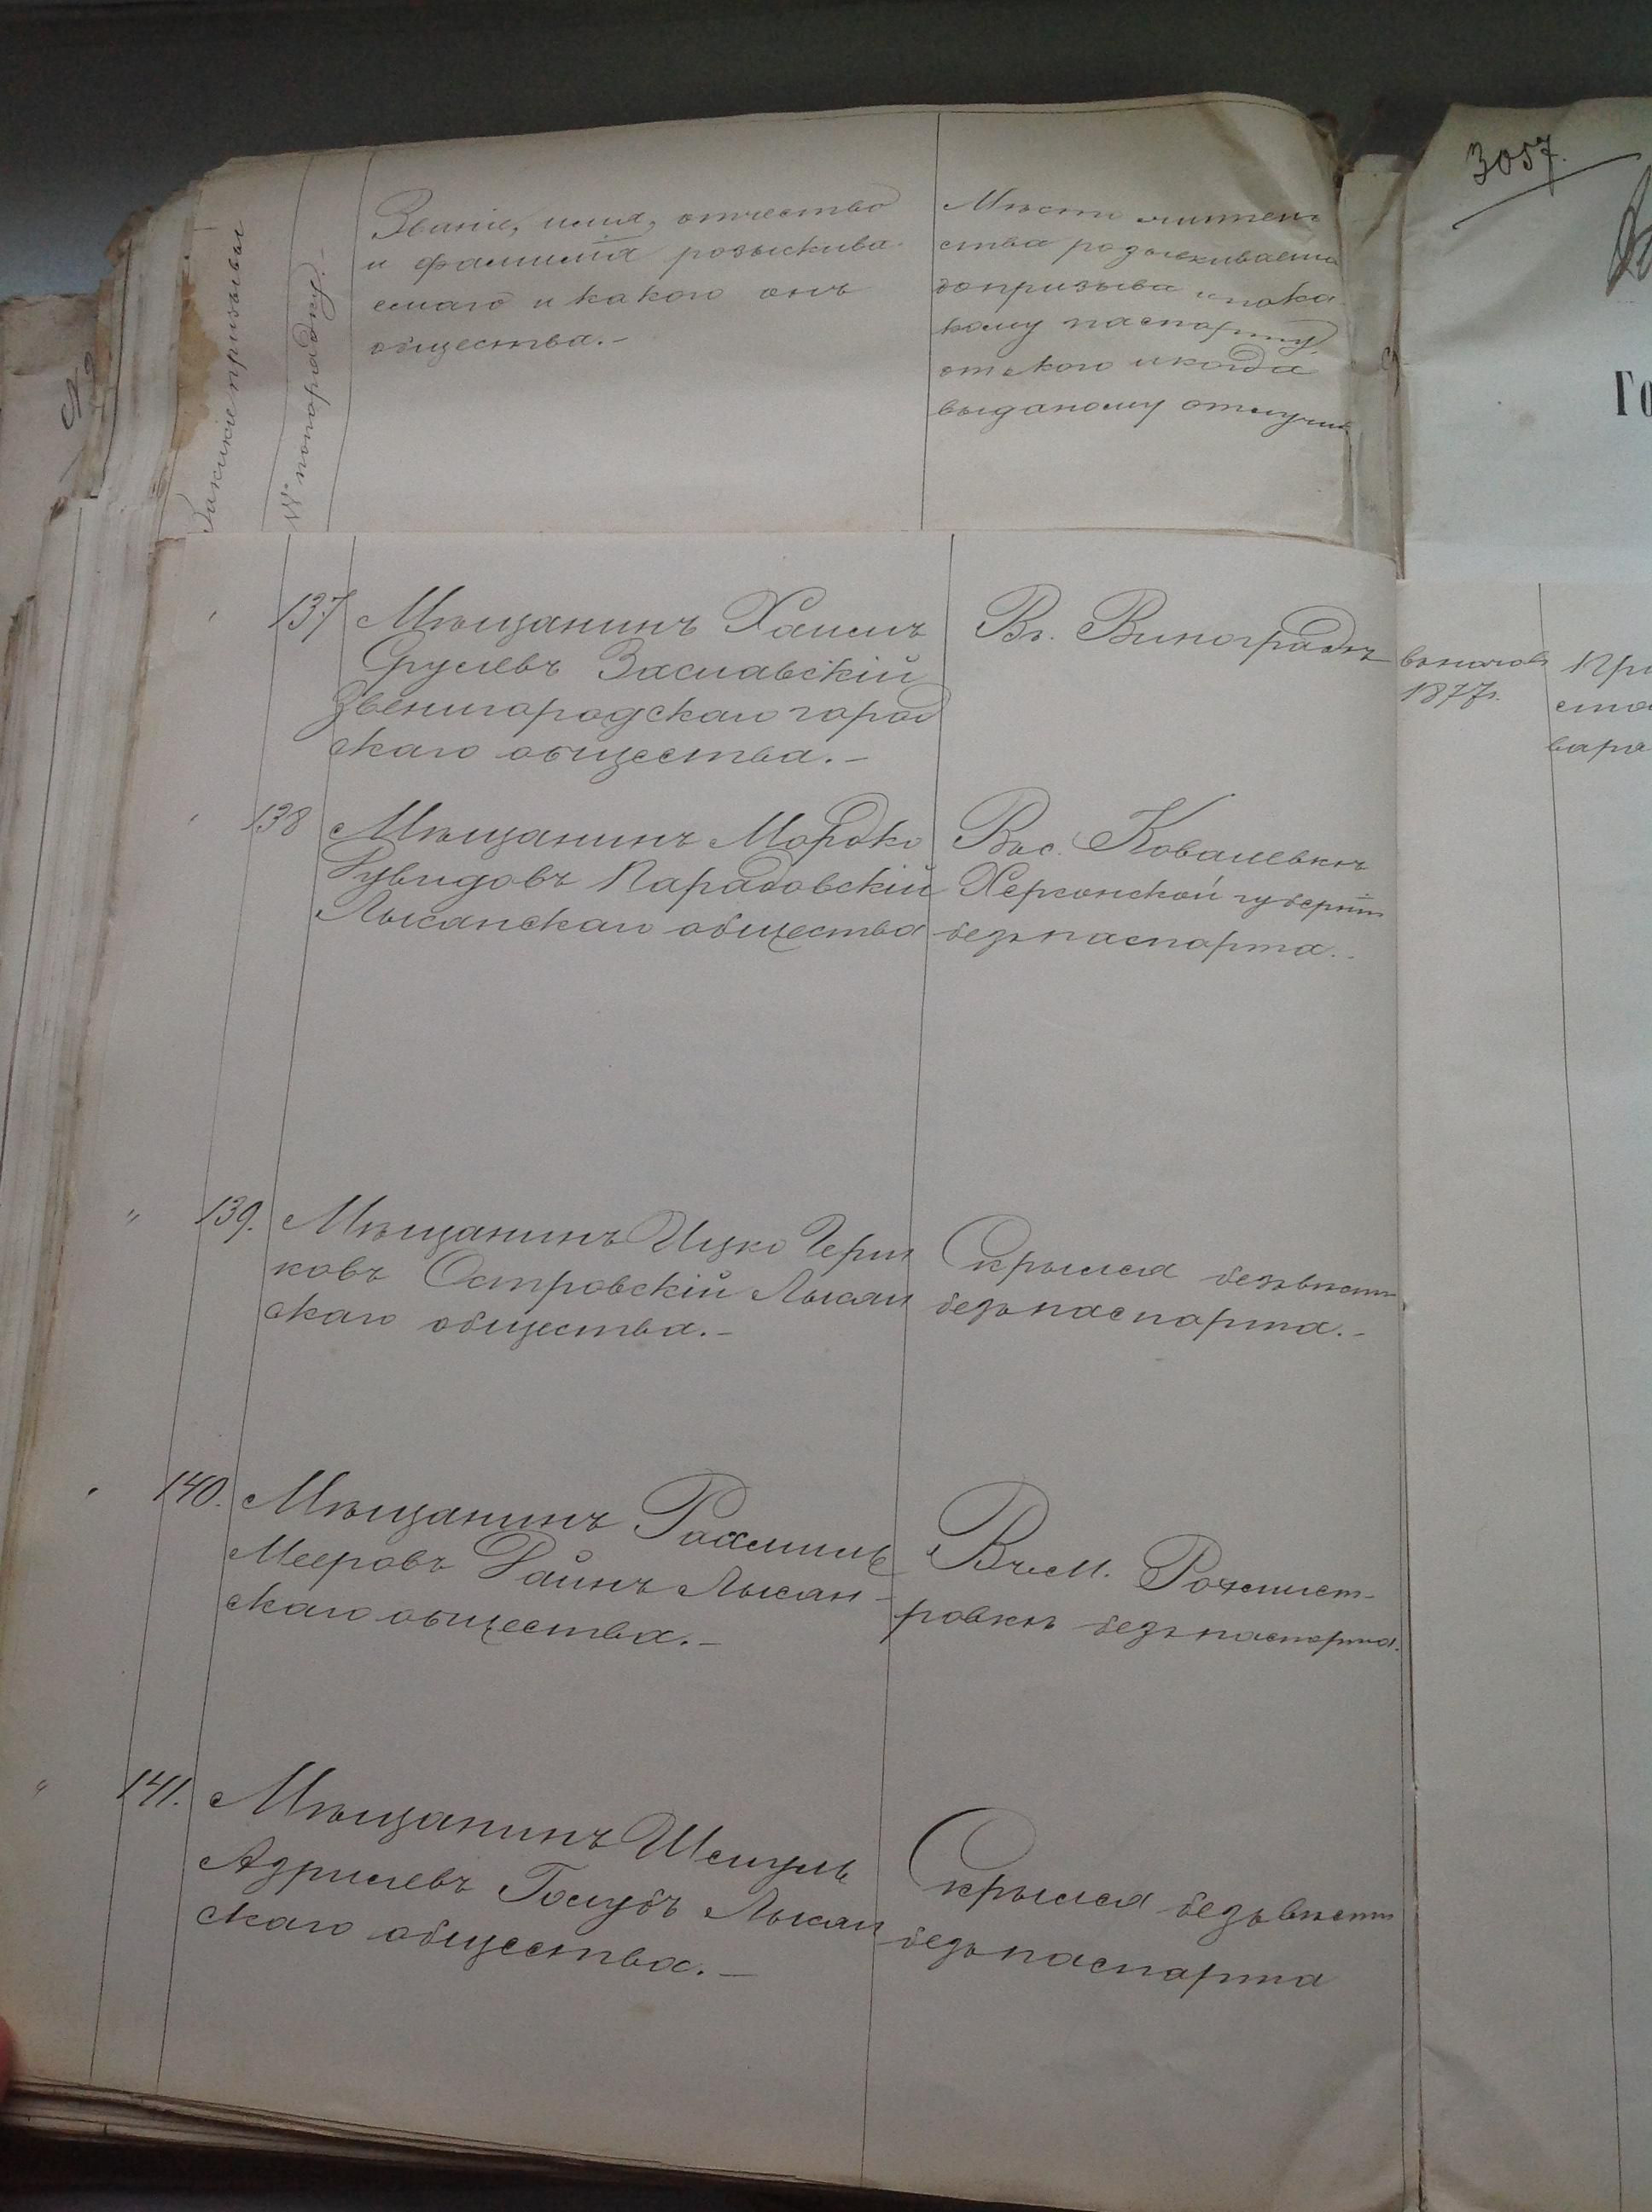 3057.
Го
№ попорядку.
Званіе, имя, отчество
и фамилія розыскива-
емаго и какого онъ
общества.-
Место житель
ства розыскиваема
до призыва и по ка
кому паспорту,
от кого и когда
выданому отлучил
137 Мѣщанинъ Хаимъ
Срулевъ Заславскій
Звенигородскаго город
скаго общества.-
Вг. Виноградъ
вначалѣ
1877г.
При
138 Мѣщанинъ Мордко
Рувидовъ Парадовскій
Лысанскаго общества
Въс. Ковалевкѣ
Херсонской губерніи
безъ паспорта.-
139. Мѣщанинъ Ицко Герш
ковъ Островскій Лысан
скаго общества.-
Скрылся безъвѣсти
безъ паспорта.-
140. Мѣщанинъ Рахмиль
Мееровъ Файнъ Лысан-
скаго общества.-
Въ м. Ротмист-
ровкѣ безъ паспорта.
141. Мѣщанинъ Шмуль
Азрилевъ Голубъ Лысан
скаго общества.-
Скрылся безъвѣсти
безъ паспорта